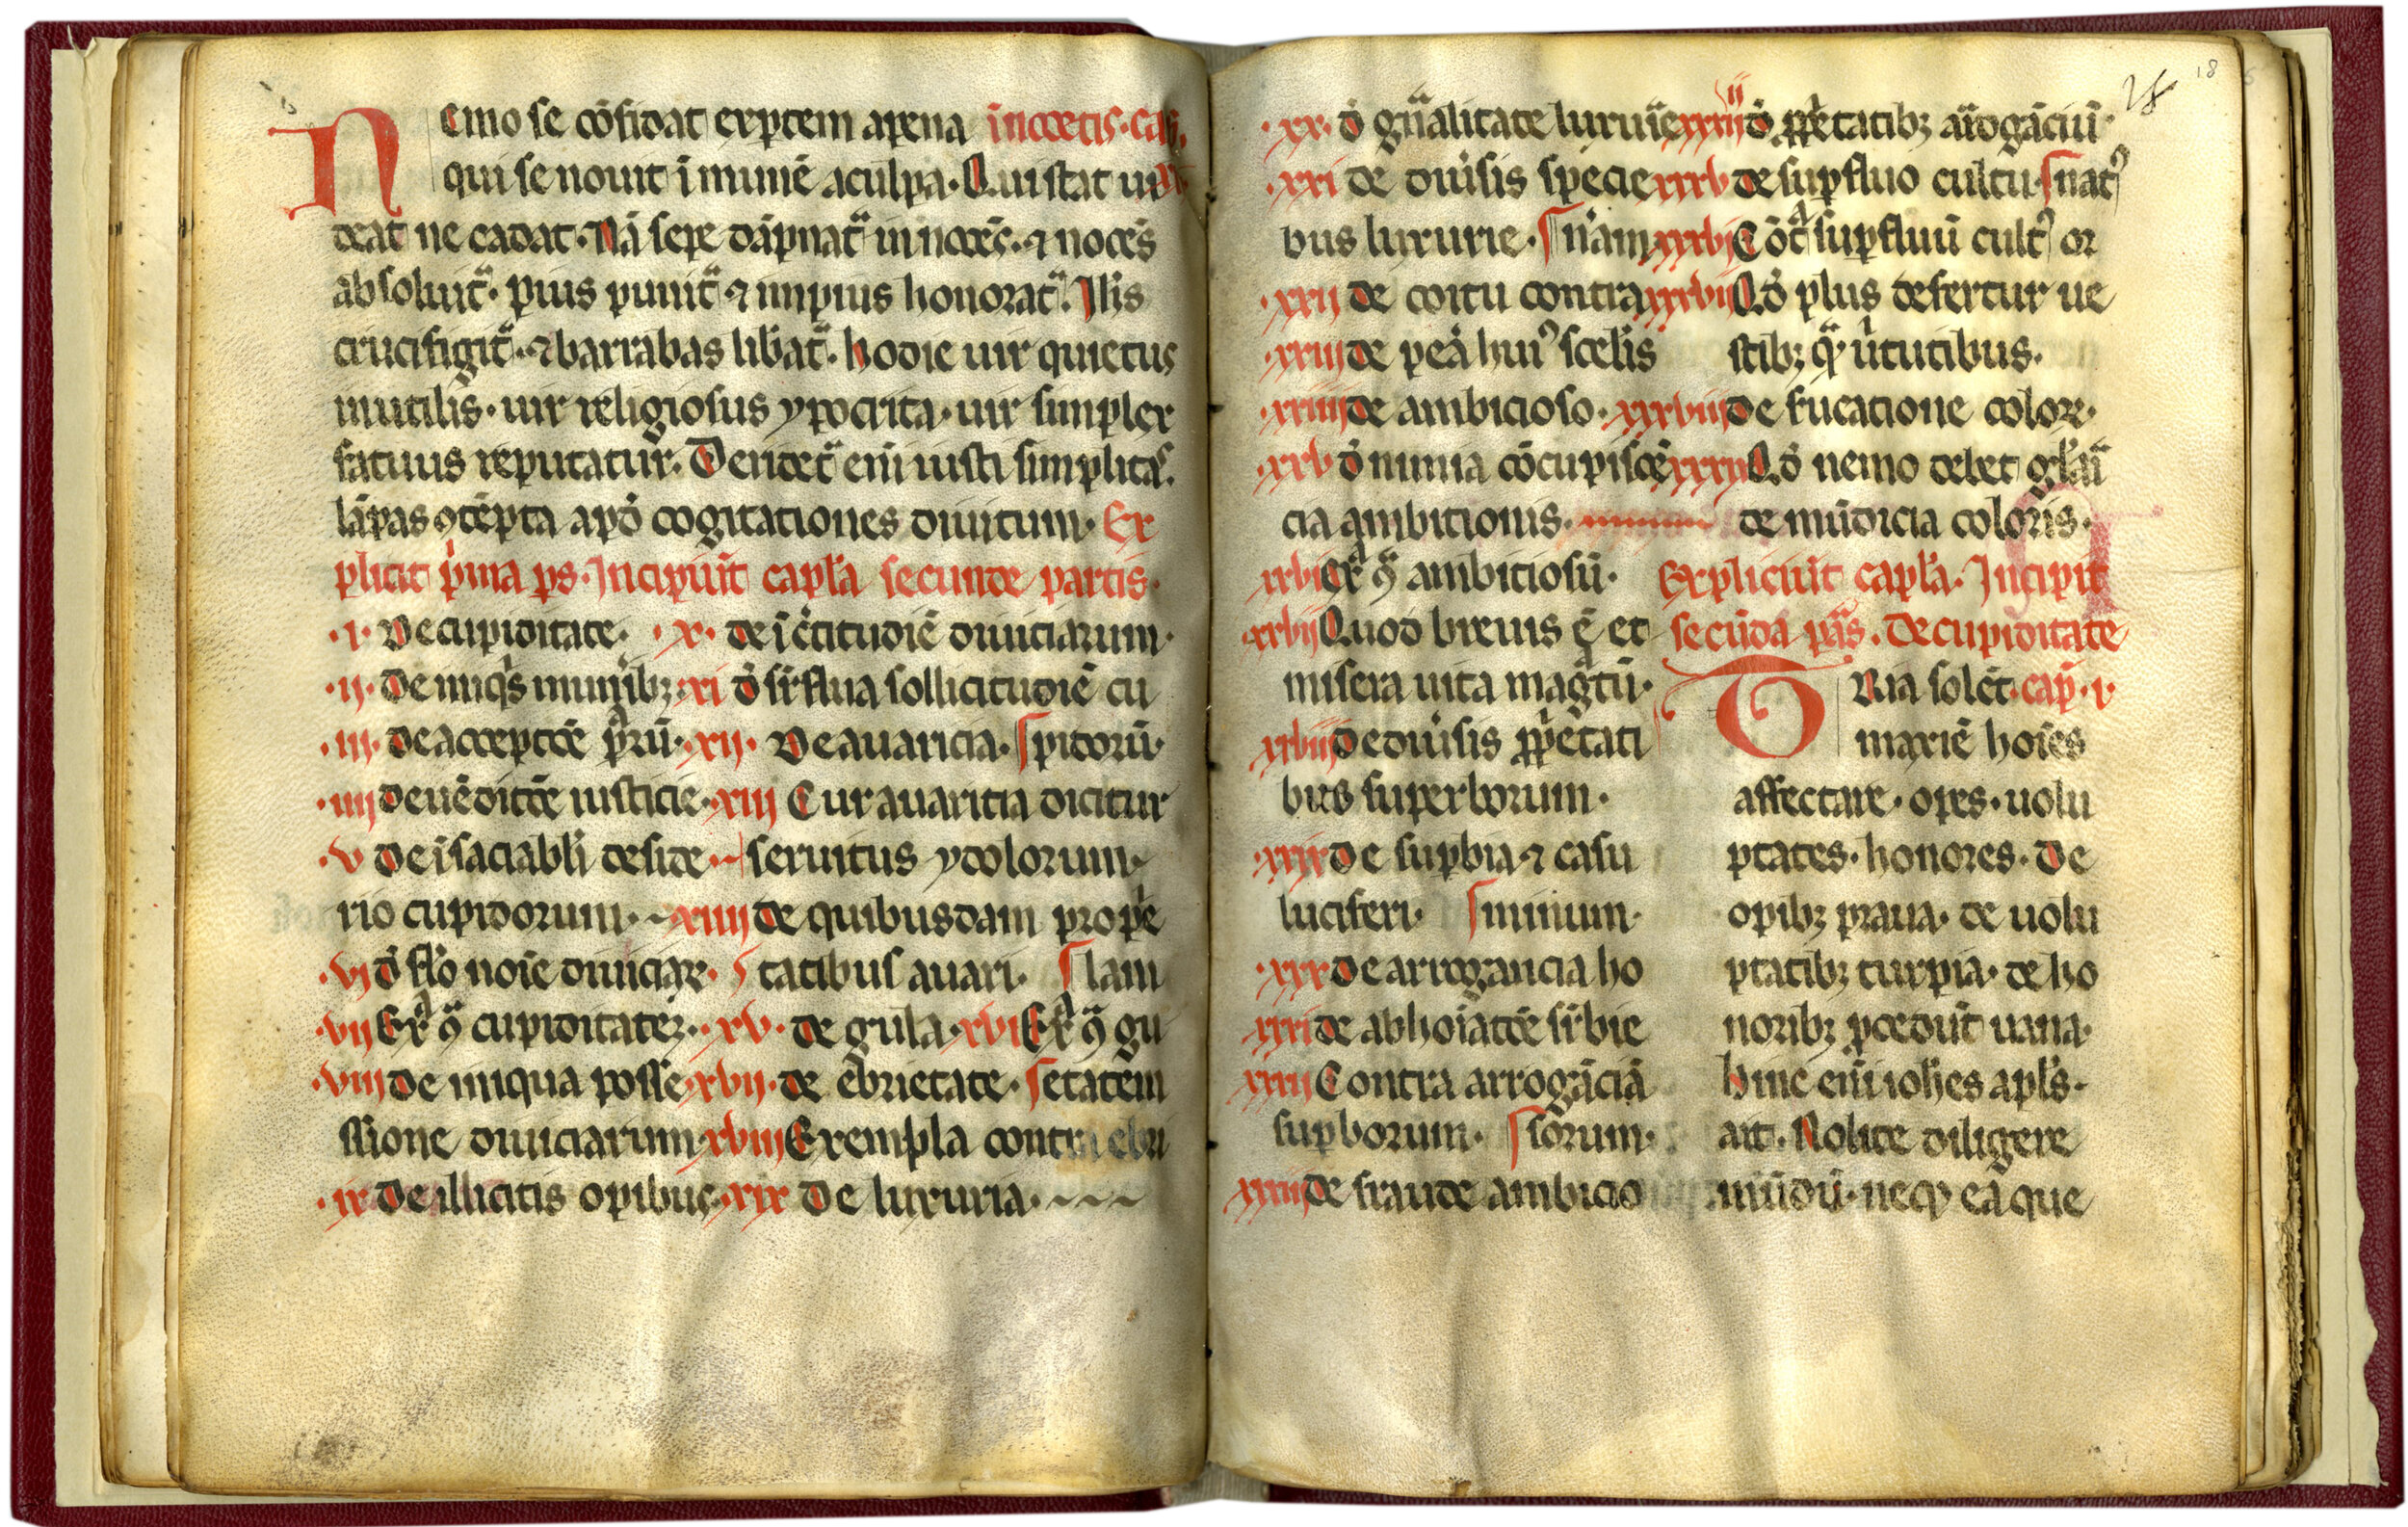 Nemo se cōfidat exꝑtem apena innocētis. cap̄.
qui se nouit īmunē aculpa. Qui stat ui
deat ne cadat. Nā sepe dāpnat᷑ innocēs. ⁊ nocēs
absoluit᷑. pius punit᷑ ⁊ impius honorat᷑. Ih̄s
crucifigit᷑. ⁊ barrabas lib̄at᷑. hodie uir quietus
inutilis. uir religiosus ypocrita. uir simplex
fatuus reputatur. Deridet᷑ eni᷑ iusti simplicitas.
lāpas ꝯtēpta apd̓ cogitationes diuitum. Ex
plicit p̓ma ps. Incipiūt capl̓a secunde partis.
.i. De cupiditate. .x. de ic̄titudīe diuiciarum.
.ii. De iniq̓s munīb; .xi. d̓ sr̄flua sollicitudīe cu
.iii. de acceptōe p̄rū. .xii. De auaricia. pidorū.
.iiii. de uēditōe iusticie. .xiii. Cur auaritia dicitur
.v. De īsaciabl̓i deside seruitus ydolorum
rio cupidorum. xiiii de quibusdam prop̓e
.vi. d̓ fl̓o noīe diuiciaꝝ. tatibus auari. lam
.vii. Ex̄ ꝯ̄ cupiditateꝫ. .xv. de gula. xvi Ex̄ ꝯ̄ gu
.viii. de iniqua posse .xvii. de ebrietate. etatem
ssione diuiciarum xviii Exempla contra ebri
.ix. De illicitis opibus. xix De luxuria.
18
.xx. d̓ gn̄alitate luxurie
.xxi. de diu̓sis specie
bus luxurie. n̄am
.xxii. de coitu contra
.xxiii. de pēa hui᷒ scel̓is
.xxiiii. de ambicioso.
.xxv. d̓ nimia cōcupiscē
cia ambitionis.
xxvi Ex̄ ꝯ̄ ambitiosū.
xxvii Quod breuis ē et
misera uita mag̓tū.
xxviii De diu̓sis ꝓp̓etati
bus superborum.
xxix de suꝑbia ⁊ casu
luciferi. minum.
.xxx de arrogancia ho
xxxi de abhoīatōe sr̄bie
xxxii Contra arrogāciā
suꝑborum. sorum.
xxxiii de fraude ambicio
xxxiiii d̓ ꝓp̓etatib; arrogāciū.
xxxv de suꝑfluo cultu. nat᷒
xxxvi Cōt̄ suꝑfluū cult᷒ or
xxxvii Qd̓ plus defertur ue
stib; qͣ̄ ůtutibus.
xxxviii de fucatione colorꝝ.
xxxix Qd̓ nemo debet gl̓ari
de mūdicia coloris.
Expliciūt capl̓a. Incipit
secūda pars. De cupiditate
Tria solēt. cap̄. i.
maxīe hoīes
affectare. opes. uolu
ptates. honores. De
opib; praua. de uolu
ptatib; turpia. de ho
norib; ꝓcedūt uana.
hinc eni᷑ ioh̄es apl̓s.
ait. Nolite diligere
mūdū. neqꝫ ea que